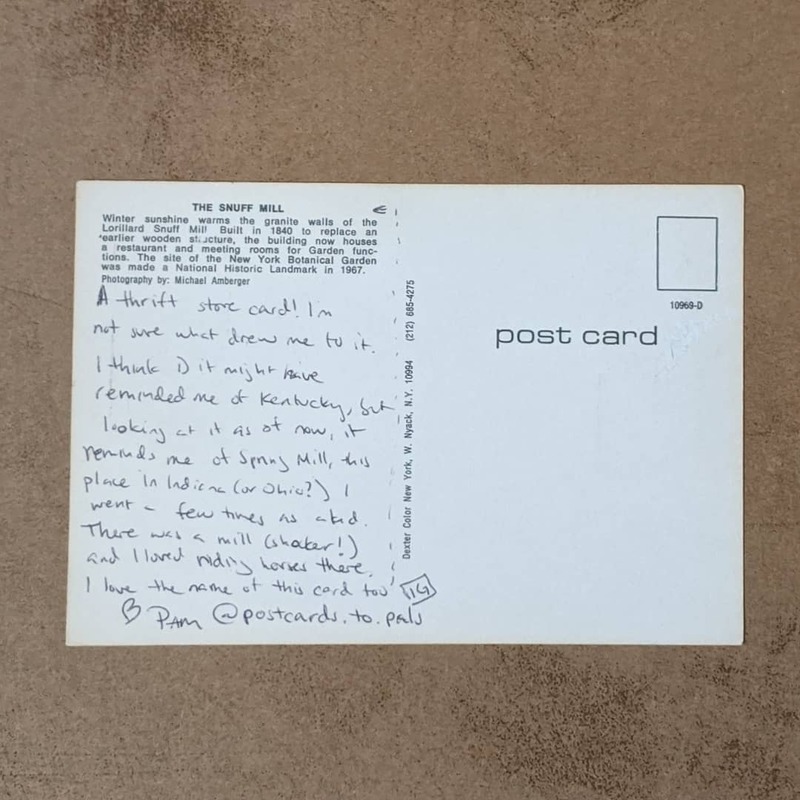 THE SNUFF MILL
Winter sunshine warms the granite walls of the
Lorillard Snuff Mill Built in 1840 to replace an
earlier wooden structure, the building now houses
a restaurant and meeting rooms for Garden func-
tions. The site of the New York Botanical Garden
was made a National Historic Landmark in 1967.
Photography by: Michael Amberger
A thrift store card! I'm
not sure what drew me to it.
I think I) it might have
reminded me of Kentucky, but
looking at it as of now, it
reminds me of Spring Mill, this
place in Indiana (or Ohio?) I
went a few times as a kid.
There was a mill (shocker!)
and I loved riding horses there.
I love the name of this card too
♡ Pam @postcards.to.pals
Dexter Color New York, W. Nyack, N.Y. 10994 (212) 685-4275
10969-D
post card